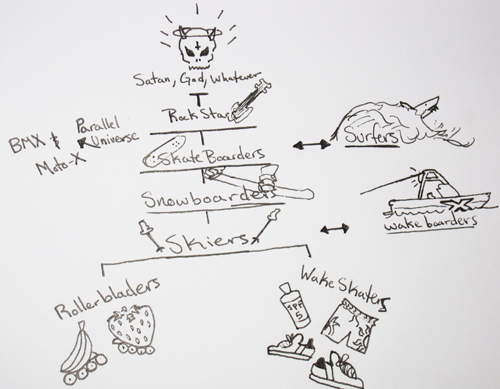 Satan, God, Whatever
Rock Stars
BMX &
Moto-X
Parallel
Universe
Skate Boarders
Surfers
Snowboarders
wake boarders
Skiers
Rollerbladers
Wake Skaters
SPF
5